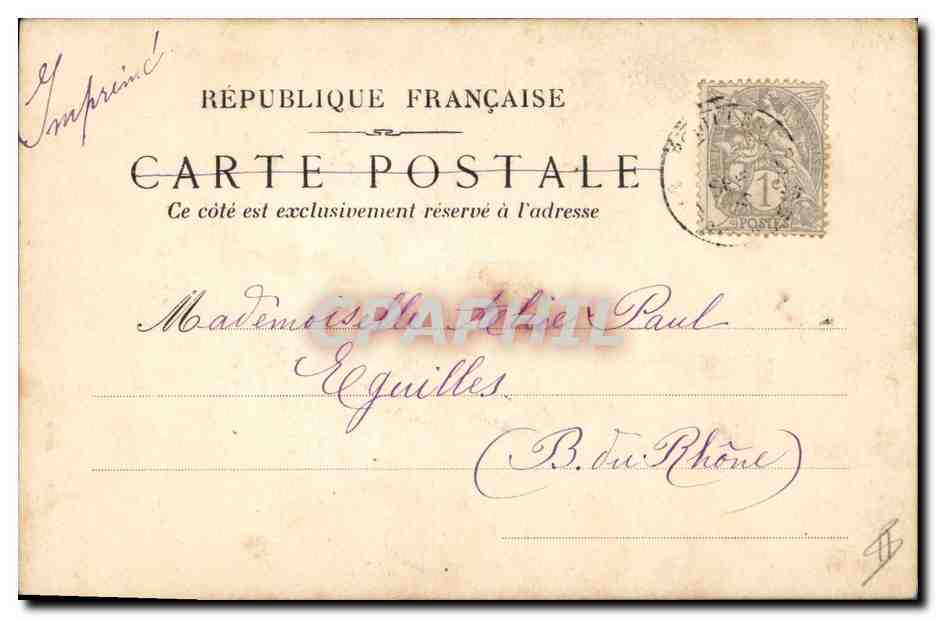 Imprimé
RÉPUBLIQUE FRANÇAISE
CARTE POSTALE
Ce côté est exclusivement réservé à l'adresse
1c
POSTES
CPAPHIL
Mademoiselle Paul
Eguilles.
(B. du Rhône)